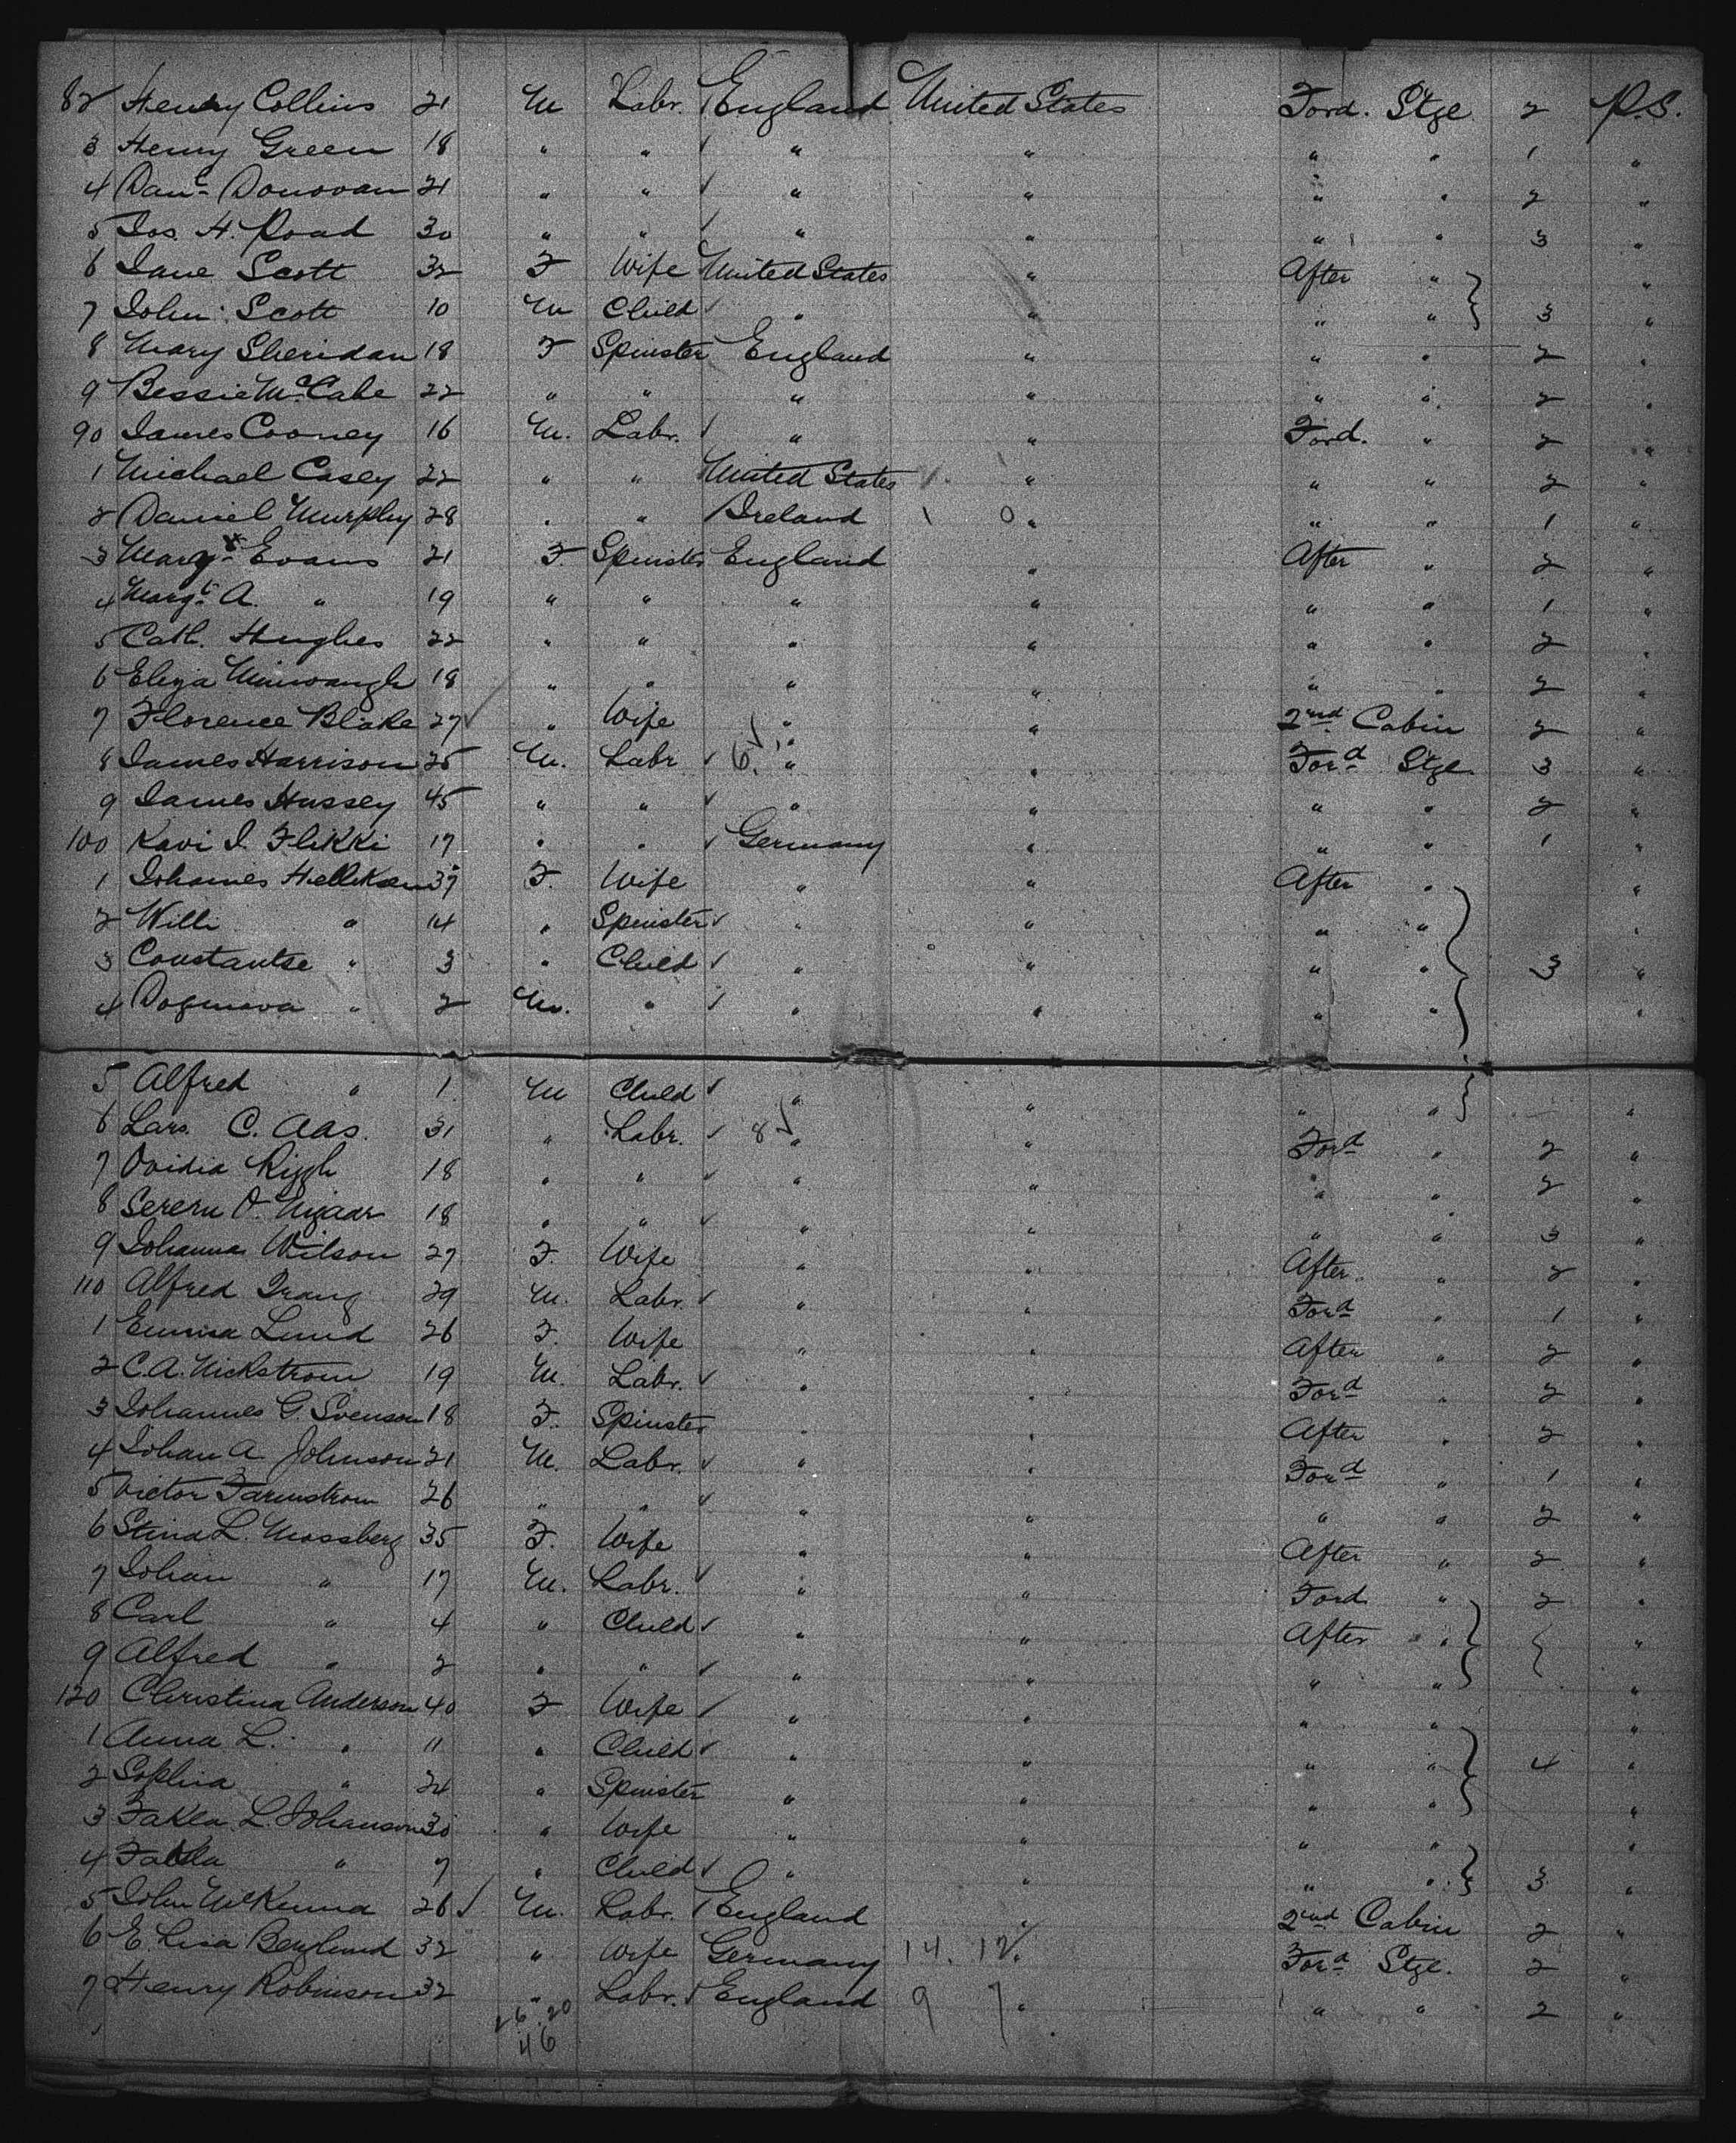 82 Henry Collins 21 M Labr. England United States Ford. Stge 2 P.S.
3 Henry Green 18 " " " " " " 1 "
4 Danl Donovan 21 " " " " " " 2 "
5 Jos. H. Road 30 " " " " " " 3 "
6 Jane Scott 32 F Wife United States " After " "
7 John Scott 10 M Child " " " " 3 "
8 Mary Sheridan 18 F Spinster England " " " 2 "
9 Bessie McCabe 22 " " " " " " 2 "
90 James Cooney 16 M. Labr. " " Ford. " 2 "
1 Michael Casey 22 " " United States " " " 2 "
2 Daniel Murphy 28 " " Ireland 1 0 " " " 1 "
3 Margt Evans 21 F. Spinster England " After " 2 "
4 Margt A. " 19 " " " " " " 1 "
5 Cath. Hughes 22 " " " " " " 2 "
6 Eliza 18 " " " " " " 2 "
7 Florence Blake 27 " Wife " " 2nd Cabin 2 "
8 James Harrison 25 M. Labr 6 " " Ford Stge 3 "
9 James Hussey 45 " " " " " " 2 "
100 Kavi I. Flikki 17 " " Germany " " " 1 "
1 Johannes 37 F. Wife " " After " "
2 Willi " 14 " Spinster " " " " "
3 Constantse " 3 " Child " " " " 3 "
4 Dogmava " 2 M. " " " " " "
5 Alfred " 1 M Child " " " " "
6 Lars. C. Aas. 31 " Labr. 8 " " Ford " 2 "
7 Ovidia 18 " " " " " " 2 "
8 Sereru O. 18 " " " " " " 3 "
9 Johanna Wilson 27 F. Wife " " After " 2 "
110 Alfred 29 M. Labr. " " Ford " 1 "
1 Emma Lund 26 F. Wife " " After " 2 "
2 C.A. Nickstrom 19 M. Labr. " " Ford " 2 "
3 Johannes G. Svenson 18 F. Spinster " After " 2 "
4 Johan A. Johnson 21 M. Labr. " " Ford " 1 "
5 Victor Farmstrom 26 " " " " " " 2 "
6 Stina L. Mossberg 35 F. Wife " " After " 2 "
7 Johan " 17 M. Labr. " " Ford " 2 "
8 Carl " 4 " Child " " After " "
9 Alfred " 2 " " " " " " "
120 Christina Anderson 40 F Wife " " " " "
1 Anna L. " 11 " Child " " " " 4 "
2 Sophia " 24 " Spinster " " " " "
3 Takla L. Johanson 30 " Wife " " " " "
4 Takla " 7 " Child " " " " 3 "
5 John McKenna 26 M. Labr. England " 2nd Cabin 2 "
6 E. Lisa Berglund 32 " Wife Germany 14. 12. " Ford Stge. 2 "
7 Henry Robinson 32 " Labr. England 9 7 " " " 2 "
26.20
46